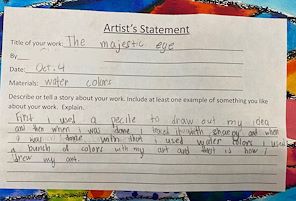 Artist's Statement
Title of your work: The majestic eye
By
Date: Oct. 4
Materials: water colors
Describe or tell a story about your work. Include at least one example of something you like
about your work. Explain.
First i used a pecile to draw out my idea
and then when i was done i traced it with sharpy and when
i was done with that i used water colors i used
a bunch of colors with my art and that is how i
drew my art.